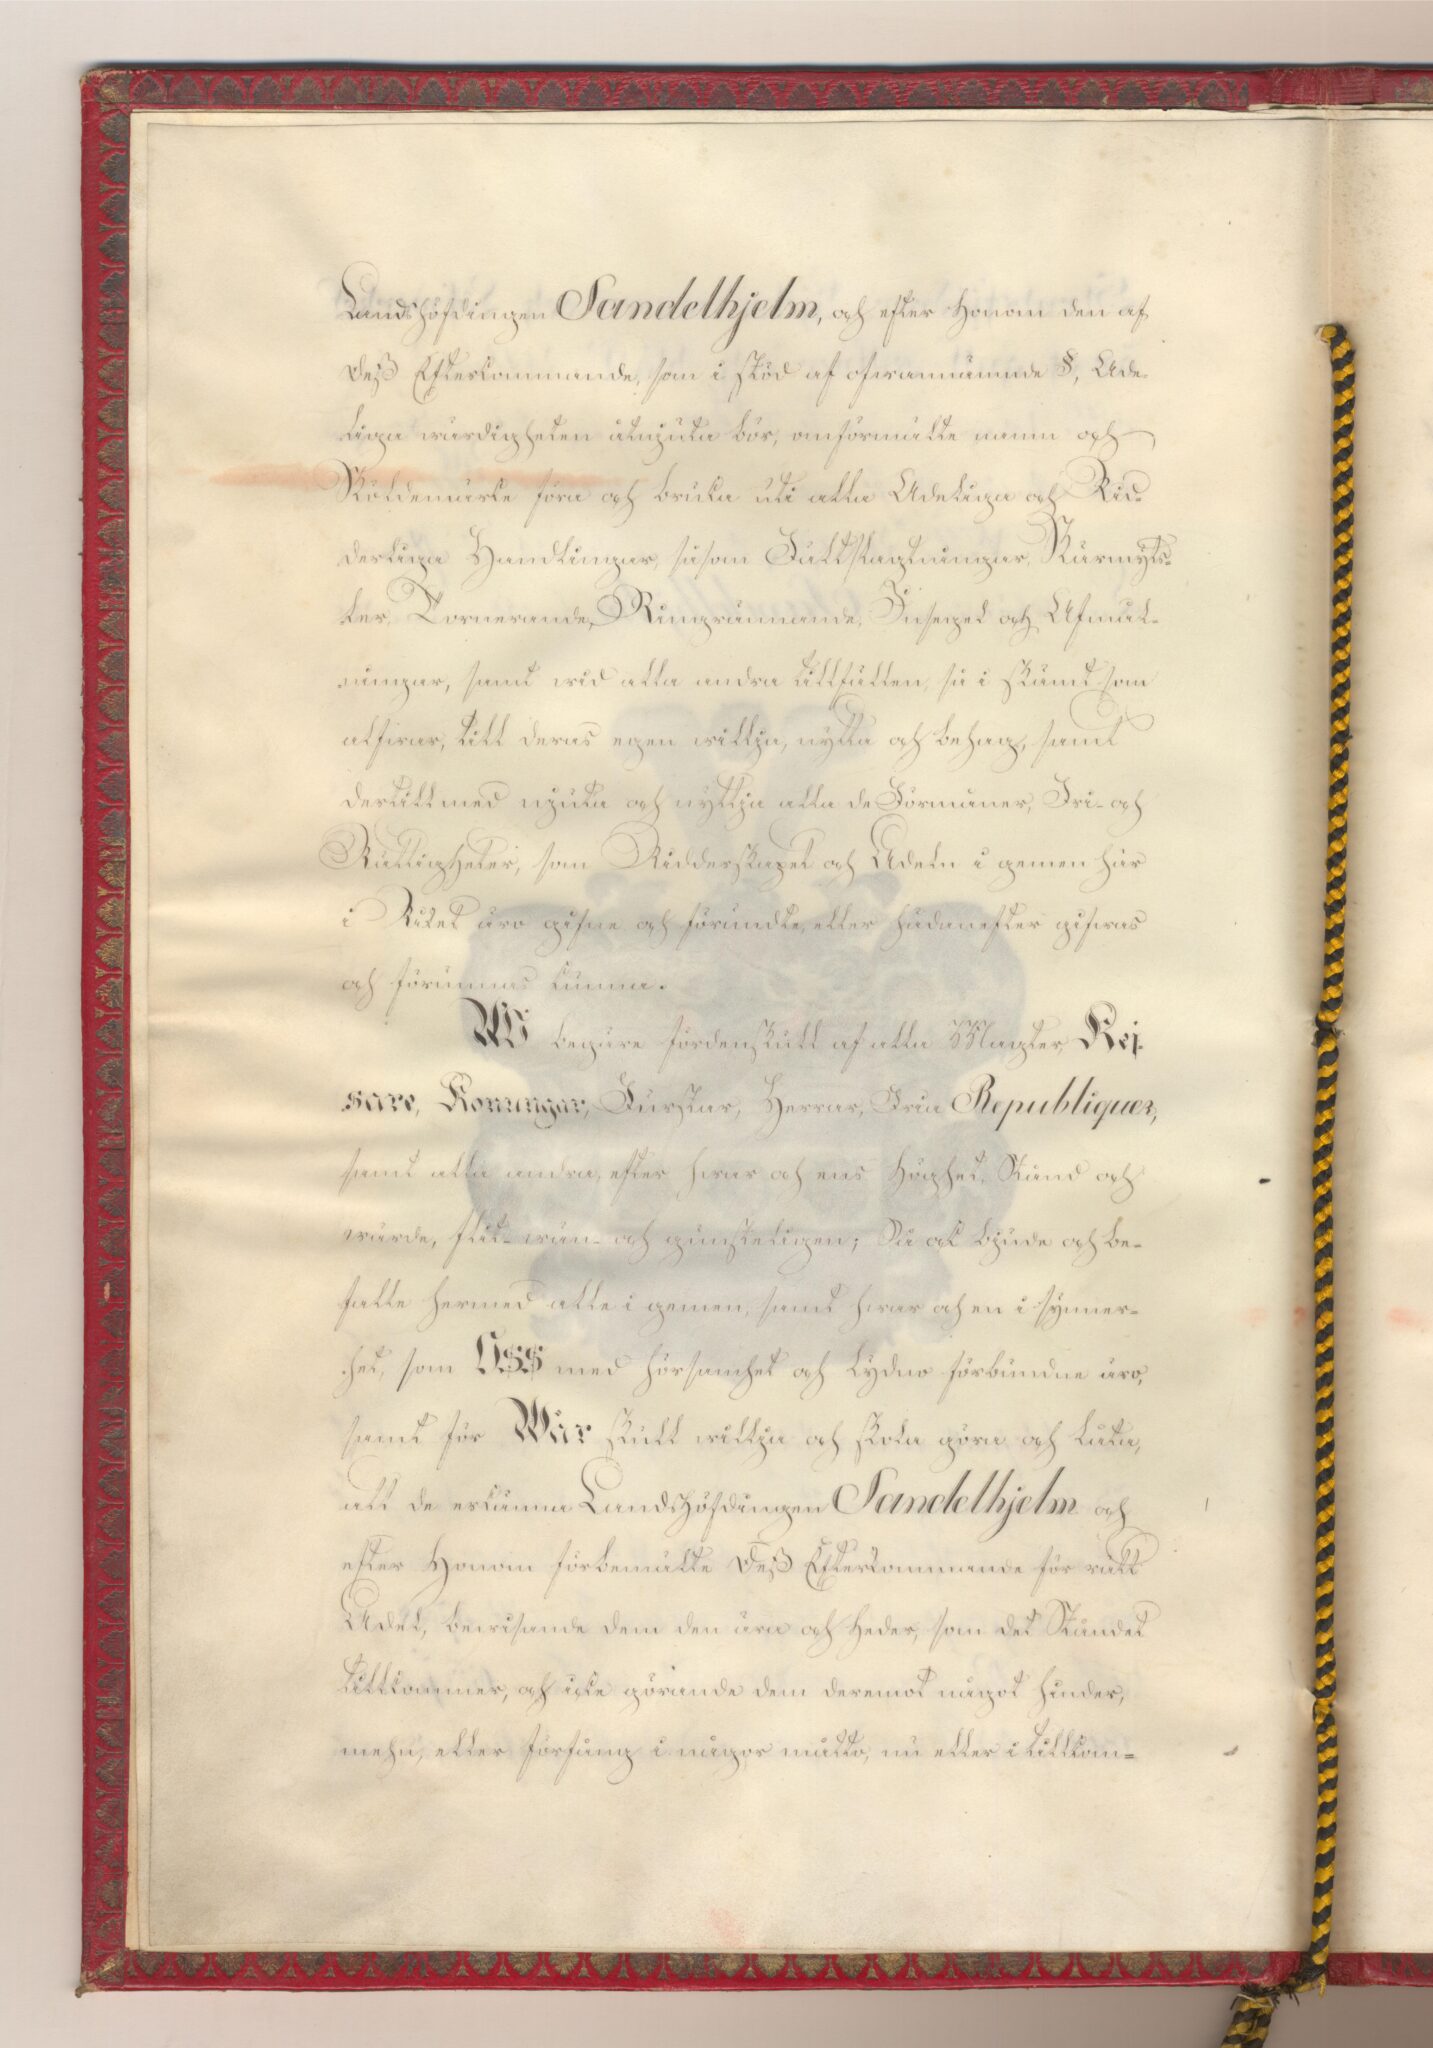 Landshöfdingen Sandelhjelm, och efter Honom den af
Deß Efterkommande, som i stöd af ofwannämnde §, Ade-
liga wärdigheten åtnjuta bör, omförmälte namn och
Sköldemärke föra och bruka uti alla Adeliga och Rid-
derliga Handlingar, såsom Fältslagtningar, Skärmyts-
ler, Tornerande, Ringrännande, Insegel och Afmål-
ningar, samt wid alla andra tillfällen, så i skämt som
alfwar, till deras egen wilja, nytta och behag, samt
dertill med njuta och nyttja alla de Förmåner, Fri- och
Rättigheter, som Ridderskapet och Adeln i gemen här
i Riket äro gifne och förundte, eller hädanefter gifwas
och förunnas kunna.
Wi begäre fördenskull af alla Magter, Kej-
sare, Konungar, Furstar, Herrar, Fria Republiquer,
samt alla andra, efter hwar och ens Höghet, Stånd och
wärde, flit- wän- och gunsteligen; Så ock bjude och be-
falle hermed alle i gemen, samt hwar och en i synner-
het, som OSS med hörsamhet och lydno förbundne äro,
samt för Wår skull wilja och skola göra och låta,
att de erkänna Landshöfdingen Sandelhjelm och
efter Honom förbemälte Deß Efterkommande för rätt
Adel, bewisande dem den ära och Heder, som det Ståndet
tillkommer, och icke görande dem deremot något hinder,
mehn, eller förfång i någor måtto, nu eller i tillkom-